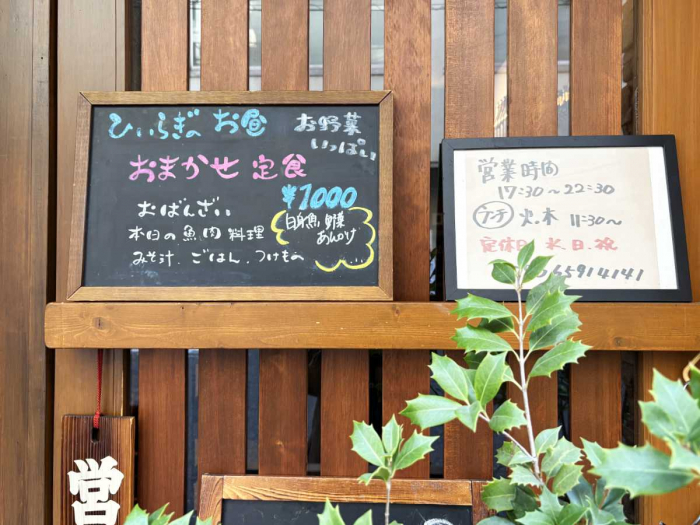 ひいらぎの お昼
お野菜
いっぱい
おまかせ 定食
¥1000
おばんざい
本日の魚肉料理
みそ汁、ごはん、つけもの
白身魚、野菜
あんかけ
営業時間
17:30～22:30
ランチ 火、木 11:30～
定休日 水、日、祝
65914141
営